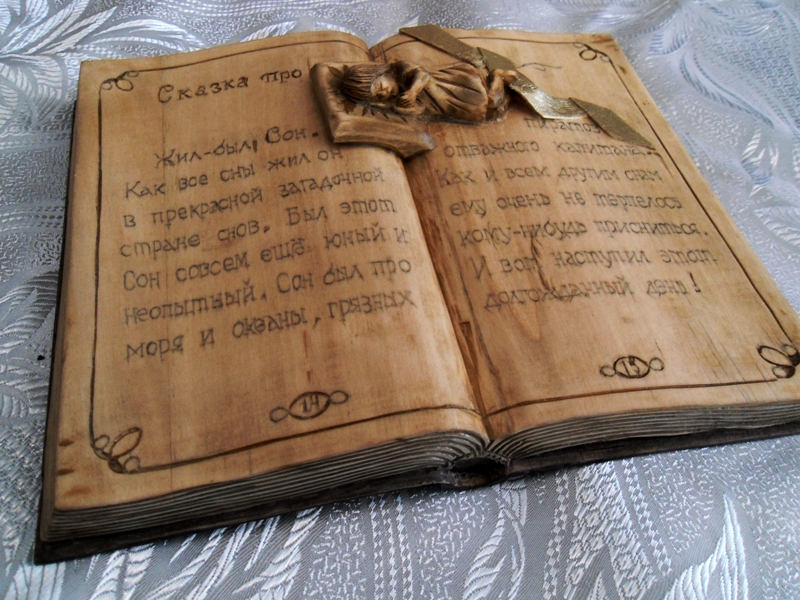 Сказка про
Жил-был, Сон.
Как все сны жил он
в прекрасной загадочной
стране снов. Был этот
Сон совсем ещё юный и
неопытный. Сон был про
моря и океаны, грязных
14
отважного капитана.
Как и всем другим снам
ему очень не терпелось
кому-нибудь присниться.
И вот наступил этот
долгожданный день!
15